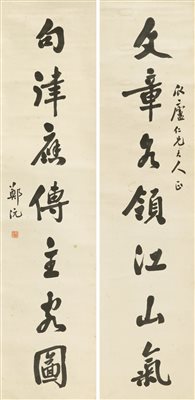 廬仁兄大人正
文章各領江山氣
句律應傳主客圖
鄭沅